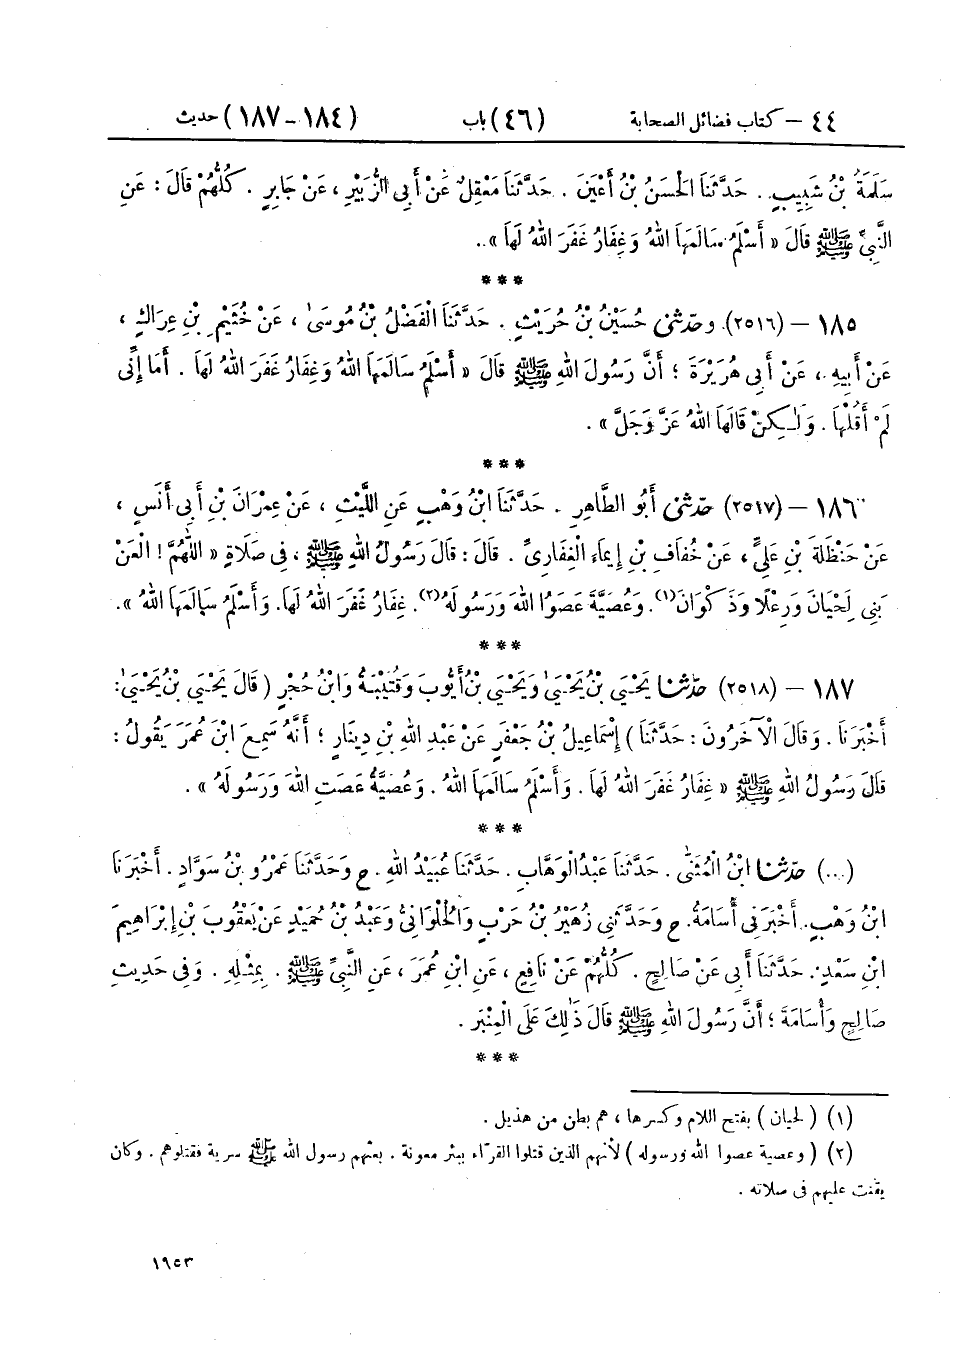 ٤٤ – كتاب فضائل الصحابة (٤٦) باب (١٨٤-١٨٧) حديث
سَلَمَةُ بْنُ شَبِيبٍ. حَدَّثَنَا الْحَسَنُ بْنُ أَعْيَنَ. حَدَّثَنَا مَعْقِلٌ عَنْ أَبِي الزُّبَيْرِ، عَنْ جَابِرٍ. كُلُّهُمْ قَالَ: عَنِ
النَّبِيِّ ﷺ قَالَ « أَسْلَمُ سَالَمَهَا اللهُ وَغِفَارُ غَفَرَ اللهُ لَهَا ».
***
١٨٥ – (٢٥١٦) وحَدَّثَنِي حُسَيْنُ بْنُ حُرَيْثٍ. حَدَّثَنَا الْفَضْلُ بْنُ مُوسَىٰ، عَنْ خُثَيْمِ بْنِ عِرَاكٍ،
عَنْ أَبِيهِ، عَنْ أَبِي هُرَيْرَةَ؛ أَنَّ رَسُولَ اللهِ ﷺ قَالَ « أَسْلَمُ سَالَمَهَا اللهُ وَغِفَارُ غَفَرَ اللهُ لَهَا. أَمَا إِنِّي
لَمْ أَقُلْهَا. وَلَٰكِنْ قَالَهَا اللهُ عَزَّ وَجَلَّ ».
***
١٨٦ – (٢٥١٧) حَدَّثَنِي أَبُو الطَّاهِرِ. حَدَّثَنَا ابْنُ وَهْبٍ عَنِ اللَّيْثِ، عَنْ عِمْرَانَ بْنِ أَبِي أَنَسٍ،
عَنْ حَنْظَلَةَ بْنِ عَلِيٍّ، عَنْ خُفَافِ بْنِ إِيمَاءَ الْغِفَارِيِّ. قَالَ: قَالَ رَسُولُ اللهِ ﷺ، فِي صَلَاةٍ « اللّٰهُمَّ! الْعَنْ
بَنِي لِحْيَانَ وَرِعْلًا وَذَكْوَانَ(١). وَعُصَيَّةَ عَصَوُا اللهَ وَرَسُولَهُ(٢). غِفَارُ غَفَرَ اللهُ لَهَا. وَأَسْلَمُ سَالَمَهَا اللهُ ».
***
١٨٧ – (٢٥١٨) حَدَّثَنَا يَحْيَىٰ بْنُ يَحْيَىٰ وَيَحْيَىٰ بْنُ أَيُّوبَ وَقُتَيْبَةُ وَابْنُ حُجْرٍ ( قَالَ يَحْيَىٰ بْنُ يَحْيَىٰ:
أَخْبَرَنَا. وَقَالَ الْآخَرُونَ: حَدَّثَنَا ) إِسْمَاعِيلُ بْنُ جَعْفَرٍ عَنْ عَبْدِ اللهِ بْنِ دِينَارٍ؛ أَنَّهُ سَمِعَ ابْنَ عُمَرَ يَقُولُ:
قَالَ رَسُولُ اللهِ ﷺ « غِفَارُ غَفَرَ اللهُ لَهَا. وَأَسْلَمُ سَالَمَهَا اللهُ. وَعُصَيَّةُ عَصَتِ اللهَ وَرَسُولَهُ ».
***
(...) حَدَّثَنَا ابْنُ الْمُثَنَّىٰ. حَدَّثَنَا عَبْدُ الْوَهَّابِ. حَدَّثَنَا عُبَيْدُ اللهِ. ح وَحَدَّثَنَا عَمْرُو بْنُ سَوَّادٍ. أَخْبَرَنَا
ابْنُ وَهْبٍ. أَخْبَرَنِي أُسَامَةُ. ح وَحَدَّثَنِي زُهَيْرُ بْنُ حَرْبٍ وَالْحُلْوَانِيُّ وَعَبْدُ بْنُ حُمَيْدٍ عَنْ يَعْقُوبَ بْنِ إِبْرَاهِيمَ
ابْنِ سَعْدٍ. حَدَّثَنَا أَبِي عَنْ صَالِحٍ. كُلُّهُمْ عَنْ نَافِعٍ، عَنِ ابْنِ عُمَرَ، عَنِ النَّبِيِّ ﷺ. بِمِثْلِهِ. وَفِي حَدِيثِ
صَالِحٍ وَأُسَامَةَ؛ أَنَّ رَسُولَ اللهِ ﷺ قَالَ ذَٰلِكَ عَلَى الْمِنْبَرِ.
***
(١) ( لحيان ) بفتح اللام وكسرها، هم بطن من هذيل.
(٢) ( وعصية عصوا الله ورسوله ) لأنهم الذين قتلوا القرّاء ببئر معونة. بعثهم رسول الله ﷺ سرية فقتلوهم. وكان
يقنت عليهم في صلاته.
١٩٥٣